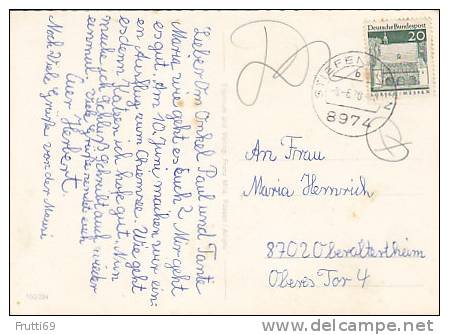 Lieber Onkel Paul und Tante
Maria wie geht es Euch? Mir geht
es gut. Am 10. Juni machen wir ein-
en Ausflug zum Chiemsee. Wie geht
es dem Vater ich hoffe gut. Nun
mache ich Schluß schreibt auch wieder
einmal. Viele Grüße sendet euch
Euer Herbert.
Noch viele Grüße von der Mami
Deutsche Bundespost
20
LORSCH HESSEN
8974
b
An Frau
Maria Hemrich
8702 Oberaltertheim
Oberes Tor 4
©Trutti69
www.delcampe.net